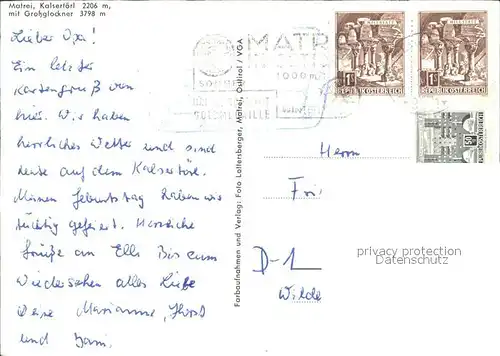 Matrei, Kalsertörl 2206 m,
mit Großglockner 3798 m
Lieber Opi!
Ein letzter
Kartengruß von
hier. Wir haben
herrliches Wetter und sind
heute auf dem Kalsertörl.
Meinen Geburtstag haben wir
tüchtig gefeiert. Herzliche
Grüße an Elli Bis zum
Wiedersehen alles Liebe
Deine Marianne, Horst
und
Farbaufnahmen und Verlag: Foto Lottersberger, Matrei, Osttirol / VGA
MATR
1000 m
SOMMER
WINTER
MILLSTATT
1S
REPUBLIK ÖSTERREICH
MILLSTATT
1S
REPUBLIK ÖSTERREICH
50
Herrn
Fri
D-1
Wilde
privacy protection
Datenschutz